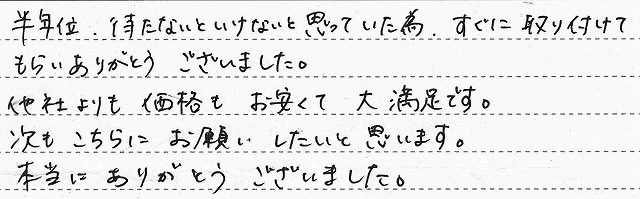 半年位、待たないといけないと思っていた為、すぐに取り付けて
もらいありがとうございました。
他社よりも価格もお安くて大満足です。
次もこちらにお願いしたいと思います。
本当にありがとうございました。